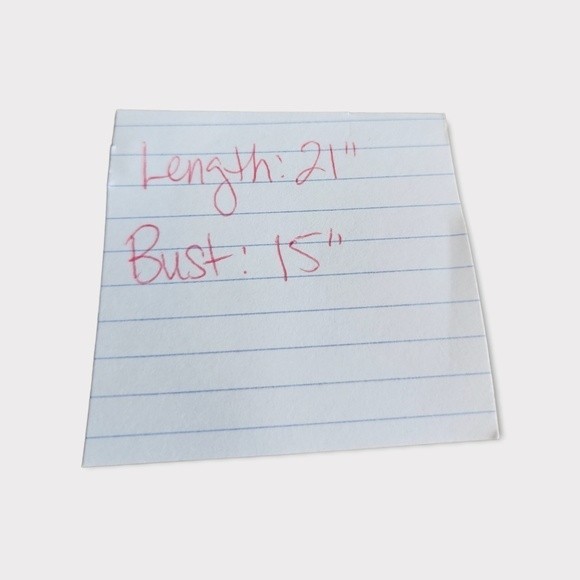 Length: 21"
Bust: 15"